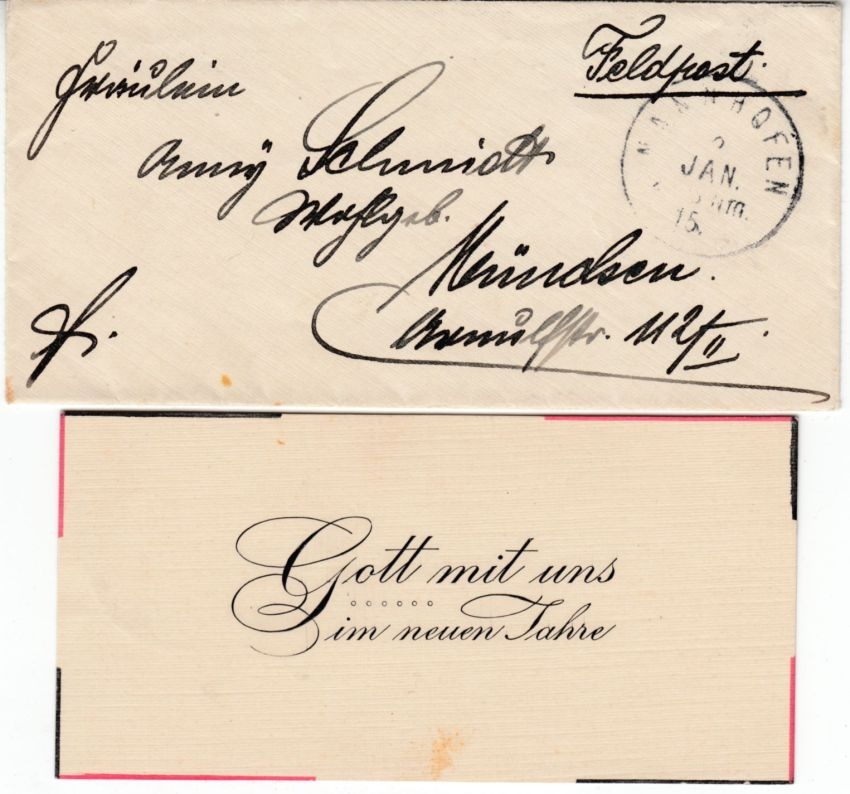 Feldpost.
Fräulein
Anny Schmidt
Wohlgeb.
München.
Arnulfstr. 112/II.
NANNHOFEN
JAN.
Nm.
15.
Gott mit uns
im neuen Jahre